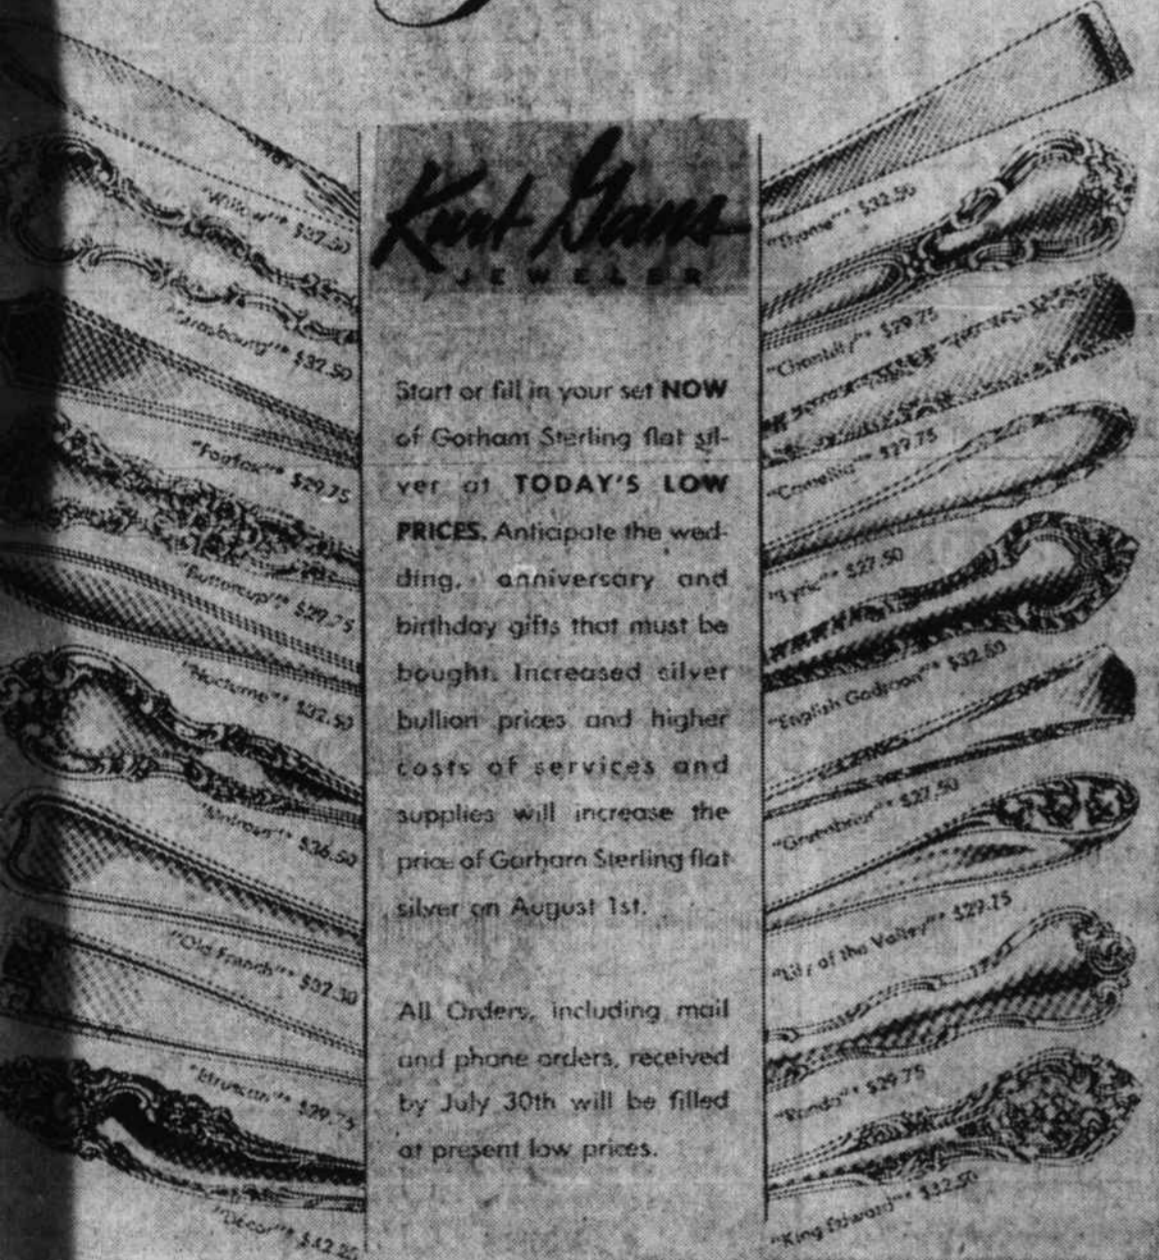 Kurt Gans
JEWELER
Start or fill in your set NOW
of Gorham Sterling flat sil-
ver at TODAY'S LOW
PRICES. Anticipate the wed-
ding, anniversary and
birthday gifts that must be
bought. Increased silver
bullion prices and higher
costs of services and
supplies will increase the
price of Gorham Sterling flat
silver on August 1st.
All Orders, including mail
and phone orders, received
by July 30th will be filled
at present low prices.
"Willow"** $27.50
"Strasbourg"** $32.50
"Fairfax"** $29.75
"Buttercup" $29.75
"Nocturne"** $32.50
"Melrose"** $36.50
"Old French"** $32.50
"Etruscan"** $29.75
"Decor"**
"Theme"** $32.50
"Chantilly"** $29.75
"Camellia"** $29.75
"Lyric"** $27.50
"English Gadroon"** $32.50
"Greenbrier"** $27.50
"Lily of the Valley"** $29.75
"Rondo"** $29.75
"King Edward"** $32.50